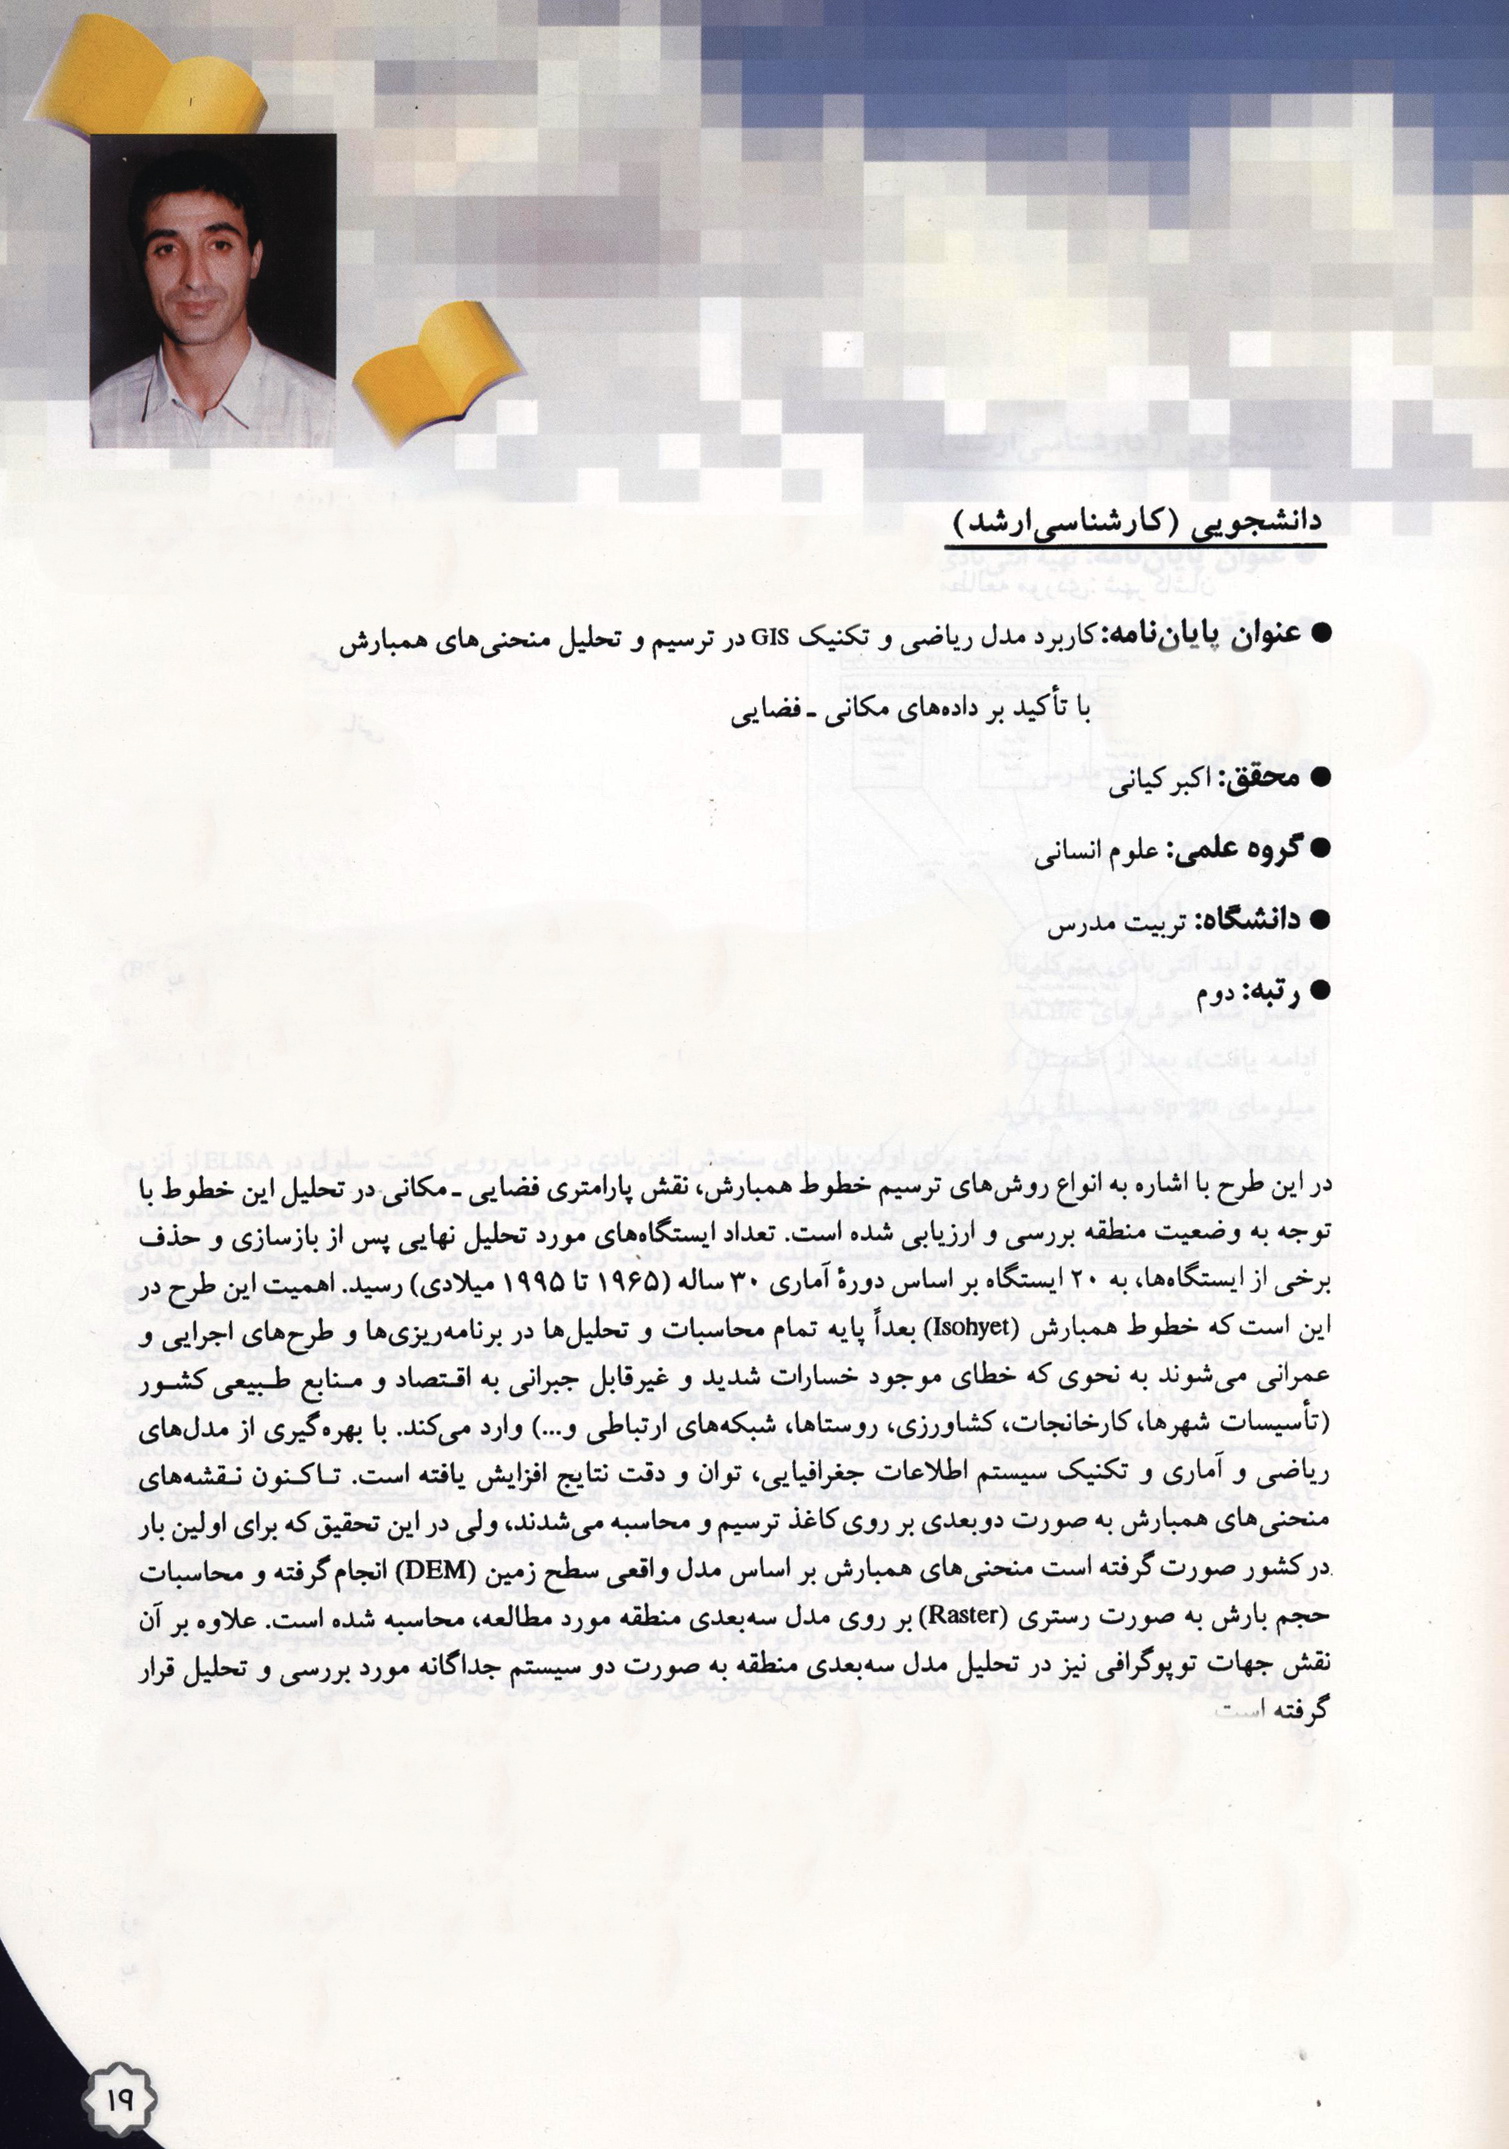 دانشجویی (کارشناسی‌ارشد)
● عنوان پایان‌نامه: کاربرد مدل ریاضی و تکنیک GIS در ترسیم و تحلیل منحنی‌های همبارش
با تأکید بر داده‌های مکانی ـ فضایی
● محقق: اکبر کیانی
● گروه علمی: علوم انسانی
● دانشگاه: تربیت مدرس
● رتبه: دوم
در این طرح با اشاره به انواع روش‌های ترسیم خطوط همبارش، نقش پارامتری فضایی ـ مکانی در تحلیل این خطوط با
توجه به وضعیت منطقه بررسی و ارزیابی شده است. تعداد ایستگاه‌های مورد تحلیل نهایی پس از بازسازی و حذف
برخی از ایستگاه‌ها، به ۲۰ ایستگاه بر اساس دورهٔ آماری ۳۰ ساله (۱۹۶۵ تا ۱۹۹۵ میلادی) رسید. اهمیت این طرح در
این است که خطوط همبارش (Isohyet) بعداً پایه تمام محاسبات و تحلیل‌ها در برنامه‌ریزی‌ها و طرح‌های اجرایی و
عمرانی می‌شوند به نحوی که خطای موجود خسارات شدید و غیرقابل جبرانی به اقتصاد و منابع طبیعی کشور
(تأسیسات شهرها، کارخانجات، کشاورزی، روستاها، شبکه‌های ارتباطی و...) وارد می‌کند. با بهره‌گیری از مدل‌های
ریاضی و آماری و تکنیک سیستم اطلاعات جغرافیایی، توان و دقت نتایج افزایش یافته است. تاکنون نقشه‌های
منحنی‌های همبارش به صورت دوبعدی بر روی کاغذ ترسیم و محاسبه می‌شدند، ولی در این تحقیق که برای اولین بار
در کشور صورت گرفته است منحنی‌های همبارش بر اساس مدل واقعی سطح زمین (DEM) انجام گرفته و محاسبات
حجم بارش به صورت رستری (Raster) بر روی مدل سه‌بعدی منطقه مورد مطالعه، محاسبه شده است. علاوه بر آن
نقش جهات توپوگرافی نیز در تحلیل مدل سه‌بعدی منطقه به صورت دو سیستم جداگانه مورد بررسی و تحلیل قرار
گرفته است
۱۹